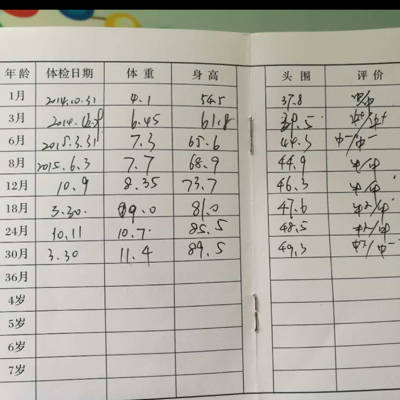 年龄 体检日期 体重 身高 头围 评价
1月 2014.10.31 4.1 54.5 37.8 中/中
3月 2014. 6.45 61.8 39.5
6月 2015.3.31 7.3 65.6 44.3 中-/中-
8月 2015.6.3 7.7 68.9 44.9 中/中
12月 10.9 8.35 73.7 46.3 中/中
18月 3.30. 9.0 81.0 47.6
24月 10.11 10.7 85.5 48.5
30月 3.30 11.4 89.5 49.3
36月
4岁
5岁
6岁
7岁